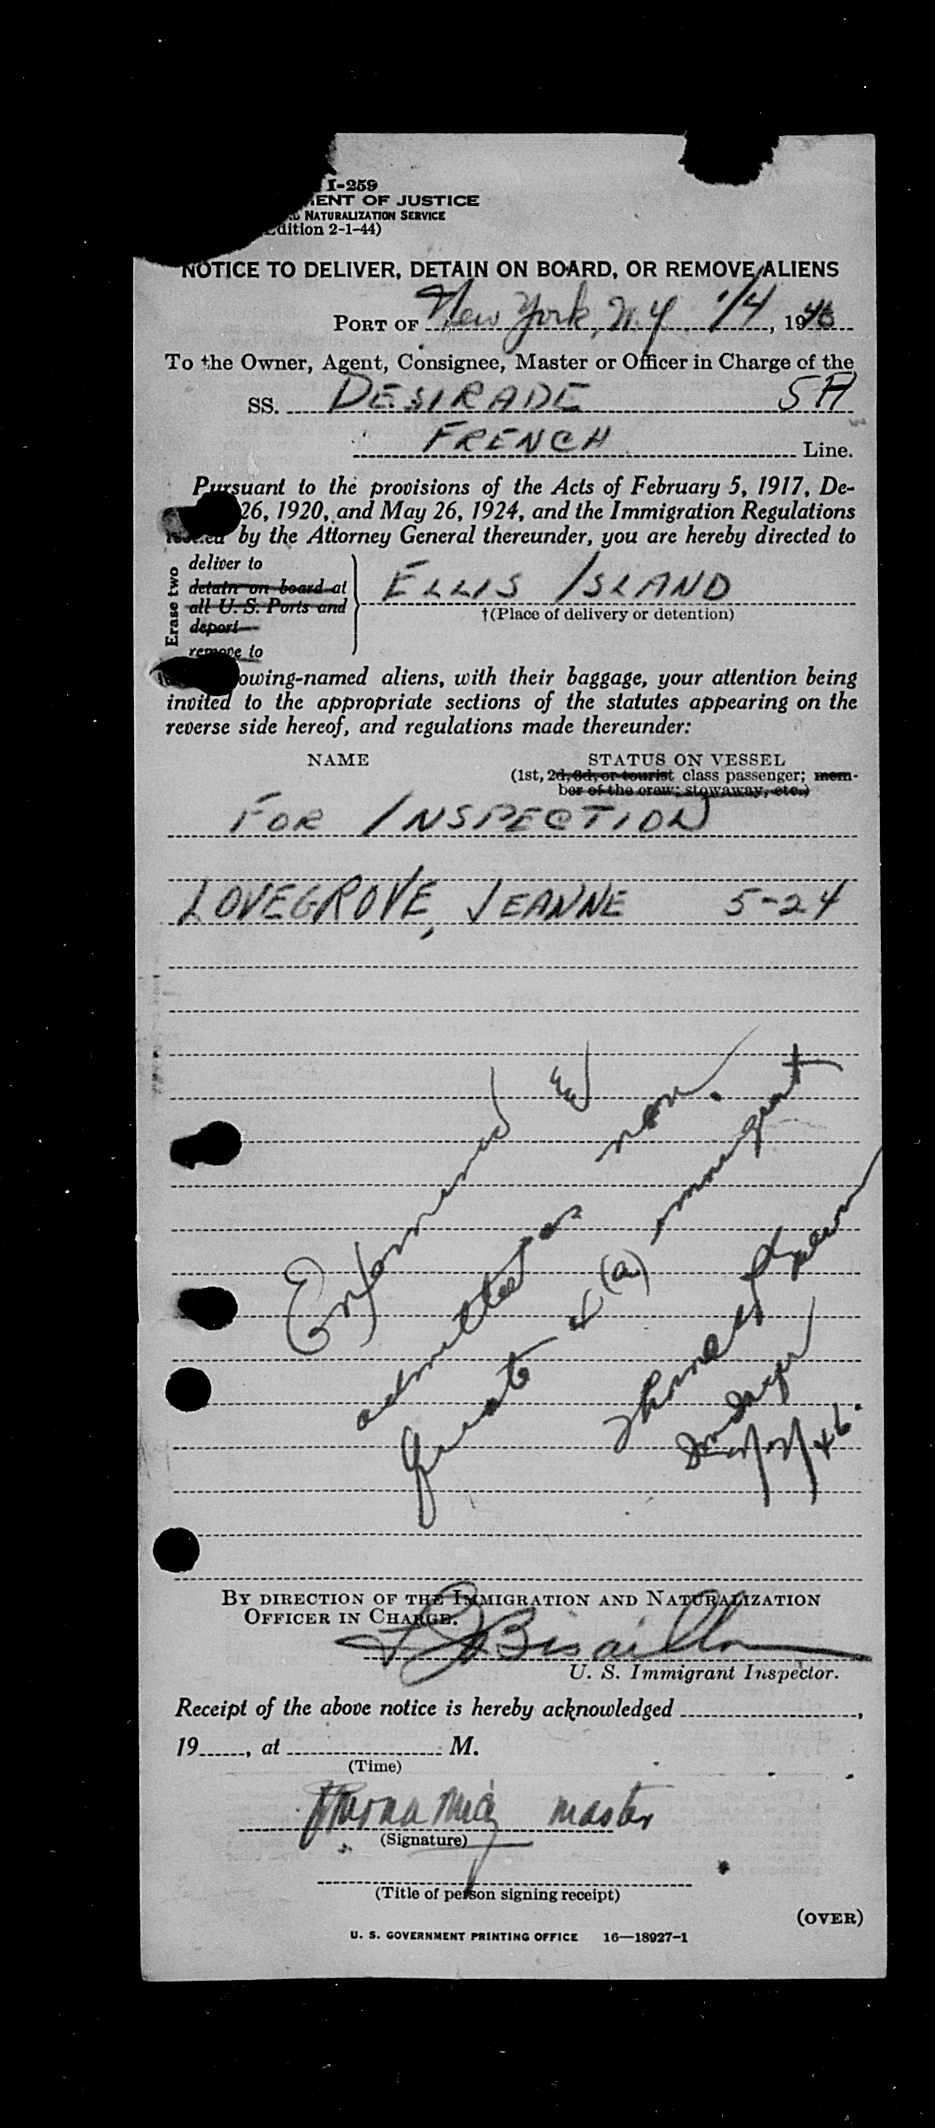 I-259
MENT OF JUSTICE
NATURALIZATION SERVICE
Edition 2-1-44)
NOTICE TO DELIVER, DETAIN ON BOARD, OR REMOVE ALIENS
PORT OF New York, N.Y. 1/4, 1946
To the Owner, Agent, Consignee, Master or Officer in Charge of the
SS. DESIRADE 5A
FRENCH Line.
Pursuant to the provisions of the Acts of February 5, 1917, De-
26, 1920, and May 26, 1924, and the Immigration Regulations
issued by the Attorney General thereunder, you are hereby directed to
Erase two
deliver to
detain on board at
all U. S. Ports and
deport
remove to
ELLIS ISLAND
†(Place of delivery or detention)
owing-named aliens, with their baggage, your attention being
invited to the appropriate sections of the statutes appearing on the
reverse side hereof, and regulations made thereunder:
NAME STATUS ON VESSEL
(1st, 2d, 3d, or tourist class passenger; mem-
ber of the crew; stowaway, etc.)
FOR INSPECTION
LOVEGROVE, JEANNE 5-24
admitted as non.
immigrant
(a)
BY DIRECTION OF THE IMMIGRATION AND NATURALIZATION
OFFICER IN CHARGE.
Bisaillon
U. S. Immigrant Inspector.
Receipt of the above notice is hereby acknowledged ,
19 , at M.
(Time)
master
(Signature)
(Title of person signing receipt)
(OVER)
U. S. GOVERNMENT PRINTING OFFICE 16—18927-1